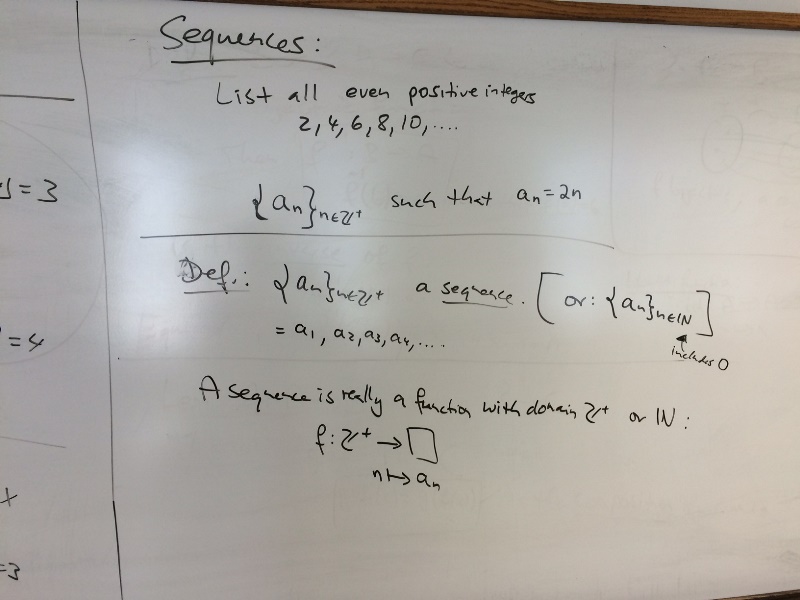 Sequences:
List all even positive integers
2, 4, 6, 8, 10, ....
{aₙ}ₙ∈ℤ⁺ such that aₙ = 2n
Def.: {aₙ}ₙ∈ℤ⁺ a sequence. [or: {aₙ}ₙ∈ℕ]
= a₁, a₂, a₃, a₄, ....
includes 0
A sequence is really a function with domain ℤ⁺ or ℕ:
f: ℤ⁺ → □
n ↦ aₙ
= 3
= 4
=3